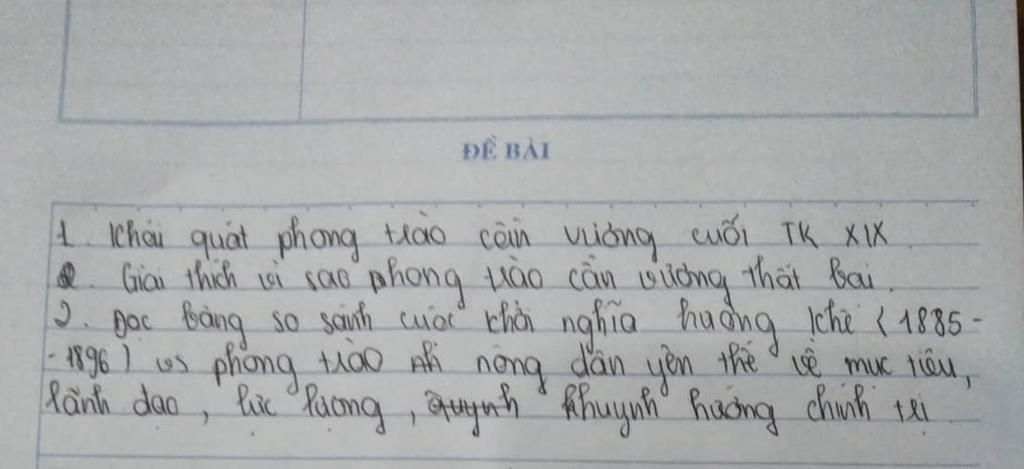 ĐỀ BÀI
1. Khái quát phong trào cần vương cuối TK XIX
. Giải thích vì sao phong trào cần vương thất bại.
2. Đọc bảng so sánh cuộc khởi nghĩa hương khê (1885-
-1896) vs phong trào nông dân yên thế về mục tiêu,
lãnh đạo, lực lượng, khuynh hướng chính trị